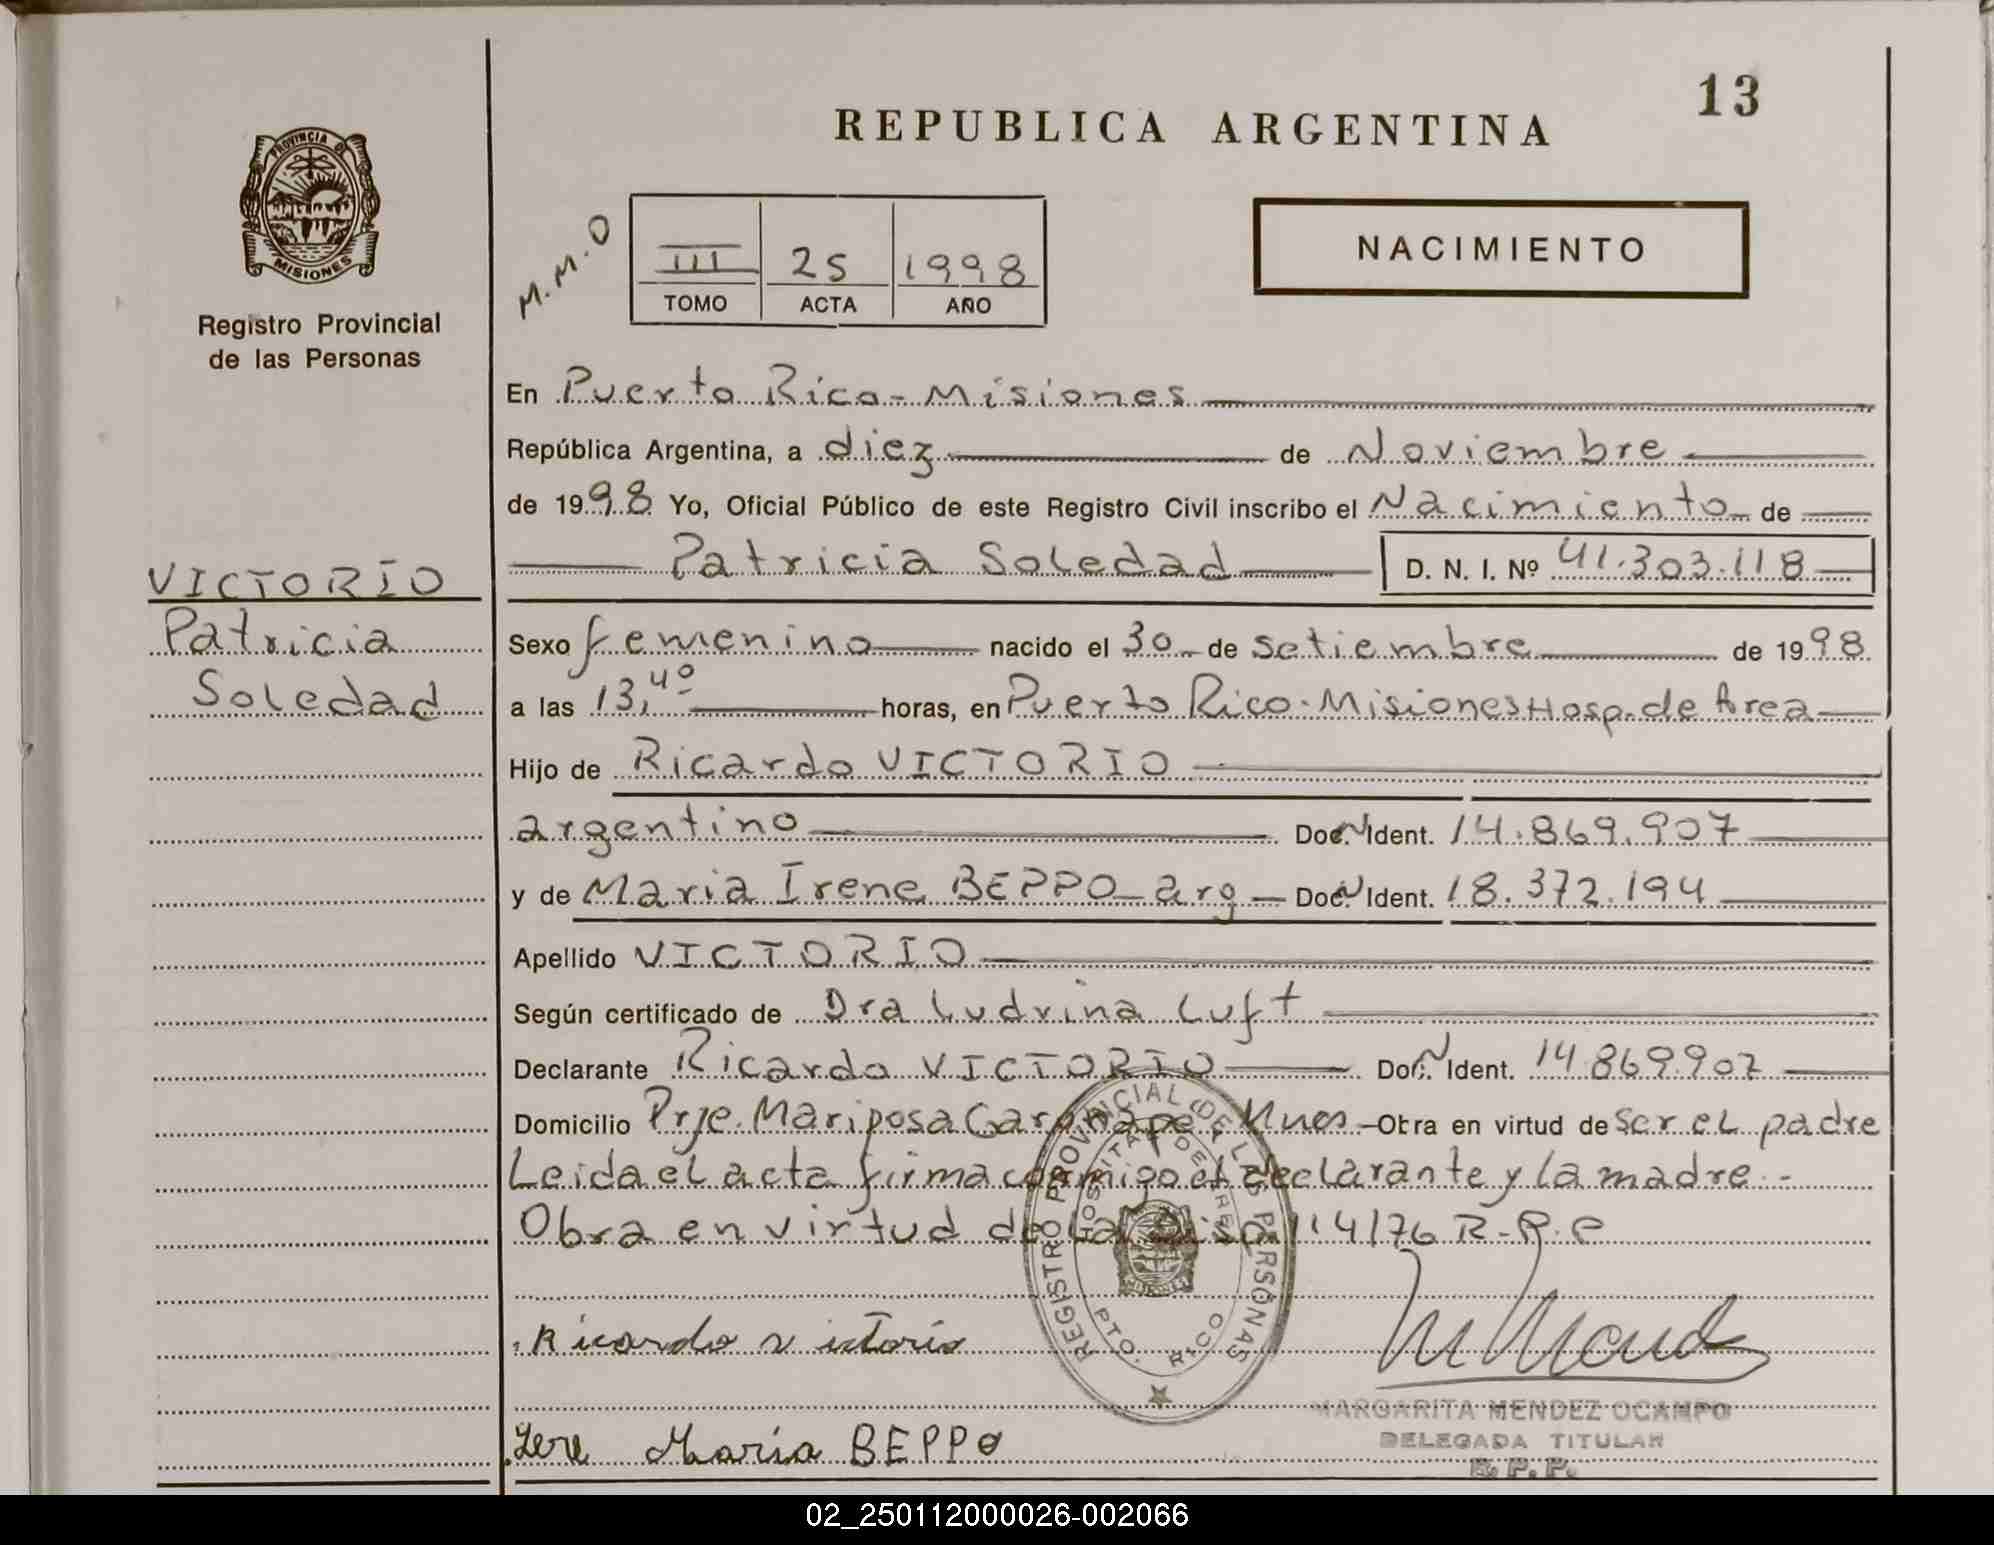 13
REPUBLICA ARGENTINA
PROVINCIA DE
MISIONES
Registro Provincial
de las Personas
M.M.O
III 25 1998
TOMO ACTA AÑO
NACIMIENTO
En Puerto Rico - Misiones
República Argentina, a diez de Noviembre
de 1998 Yo, Oficial Público de este Registro Civil inscribo el Nacimiento de
Patricia Soledad D. N. I. Nº 41.303.118
VICTORIO
Patricia
Soledad
Sexo femenino nacido el 30 de setiembre de 1998
a las 13,40 horas, en Puerto Rico - Misiones Hosp. de Area
Hijo de Ricardo VICTORIO
argentino Doc. Ident. 14.869.907
y de Maria Irene BEPPO - arg Doc. Ident. 18.372.194
Apellido VICTORIO
Según certificado de Dra Ludvina Luft
Declarante Ricardo VICTORIO Doc. Ident. 14.869.907
Domicilio Prje. Mariposa Garuhape, Mnes - Obra en virtud de ser el padre
Leida el acta firma conmigo el declarante y la madre.-
Obra en virtud de la Disp 114/76 R.P.P
REGISTRO PROVINCIAL DE LAS PERSONAS
HOSPITAL DE AREA
PTO. RICO
Ricardo Victorio
Maria BEPPO
MARGARITA MENDEZ OCAMPO
DELEGADA TITULAR
R. P. P.
02_250112000026-002066